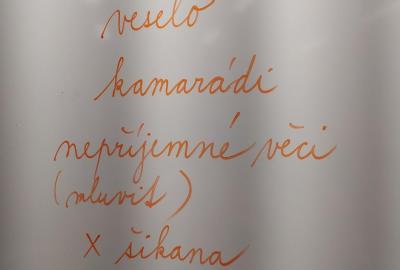 veselo
kamarádi
nepříjemné věci
(mluvit)
X šikana